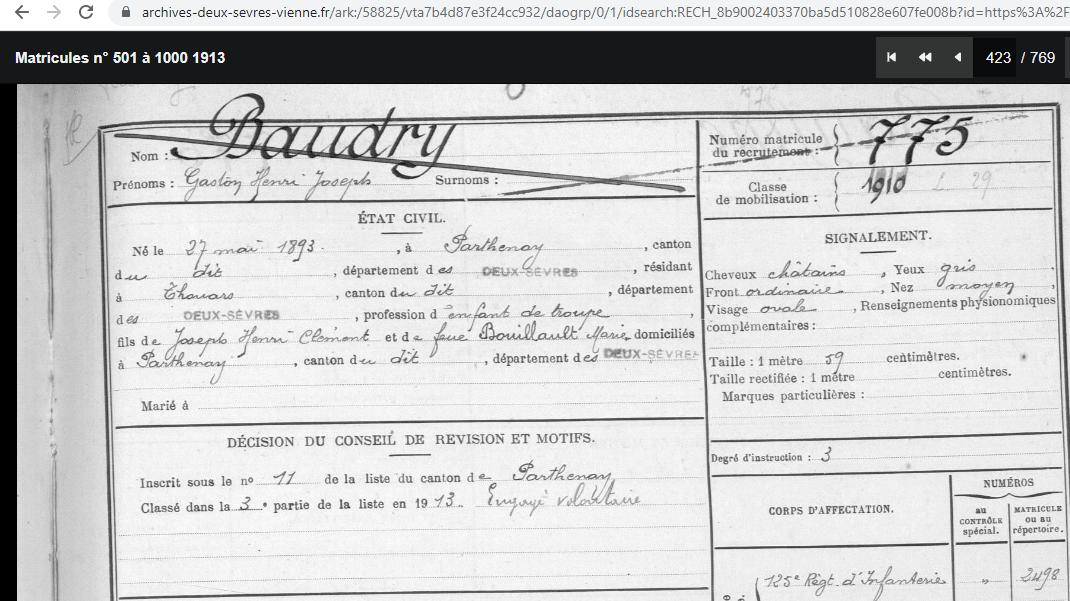 archives-deux-sevres-vienne.fr/ark:/58825/vta7b4d87e3f24cc932/daogrp/0/1/idsearch:RECH_8b9002403370ba5d510828e607fe008b?id=https%3A%2F
Matricules n° 501 à 1000 1913
423 / 769
Nom : Baudry
Prénoms : Gaston Henri Joseph Surnoms :
ÉTAT CIVIL.
Né le 27 mai 1893 , à Parthenay , canton
du dit , département des DEUX-SÈVRES , résidant
à Thouars , canton du dit , département
des DEUX-SÈVRES , profession d'enfant de troupe ,
fils de Joseph Henri Clément et de feue Bouillault Marie domiciliés
à Parthenay , canton du dit , département des DEUX-SÈVRES
Marié à
DÉCISION DU CONSEIL DE REVISION ET MOTIFS.
Inscrit sous le n° 11 de la liste du canton de Parthenay
Classé dans la 3e partie de la liste en 1913. Engagé volontaire
Numéro matricule
du recrutement : 775
Classe
de mobilisation : 1910 L. 29
SIGNALEMENT.
Cheveux châtains , Yeux gris ,
Front ordinaire , Nez moyen ,
Visage ovale , Renseignements physionomiques
complémentaires :
Taille : 1 mètre 59 centimètres.
Taille rectifiée : 1 mètre centimètres.
Marques particulières :
Degré d'instruction : 3
CORPS D'AFFECTATION.
NUMÉROS
au
CONTRÔLE
spécial.
MATRICULE
ou au
répertoire.
125e Régt. d'Infanterie " 2498